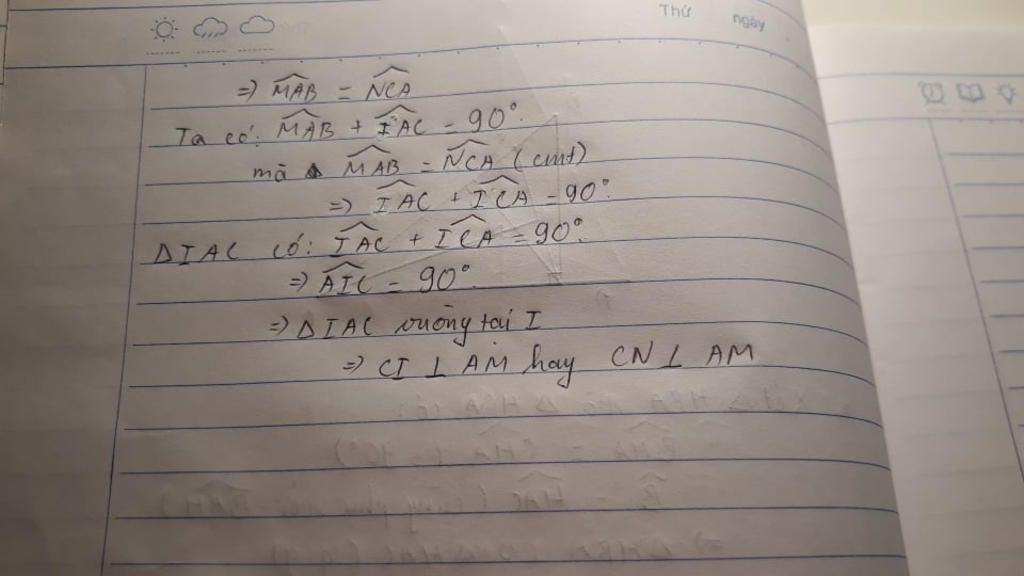 Thứ ngày
=> M̂AB = N̂CA
Ta có: M̂AB + ÎAC = 90°.
mà M̂AB = N̂CA (cmt)
=> ÎAC + ÎCA = 90°.
ΔIAC có: ÎAC + ÎCA = 90°.
=> ÂIC = 90°.
=> ΔIAC vuông tại I
=> CI ⊥ AM hay CN ⊥ AM